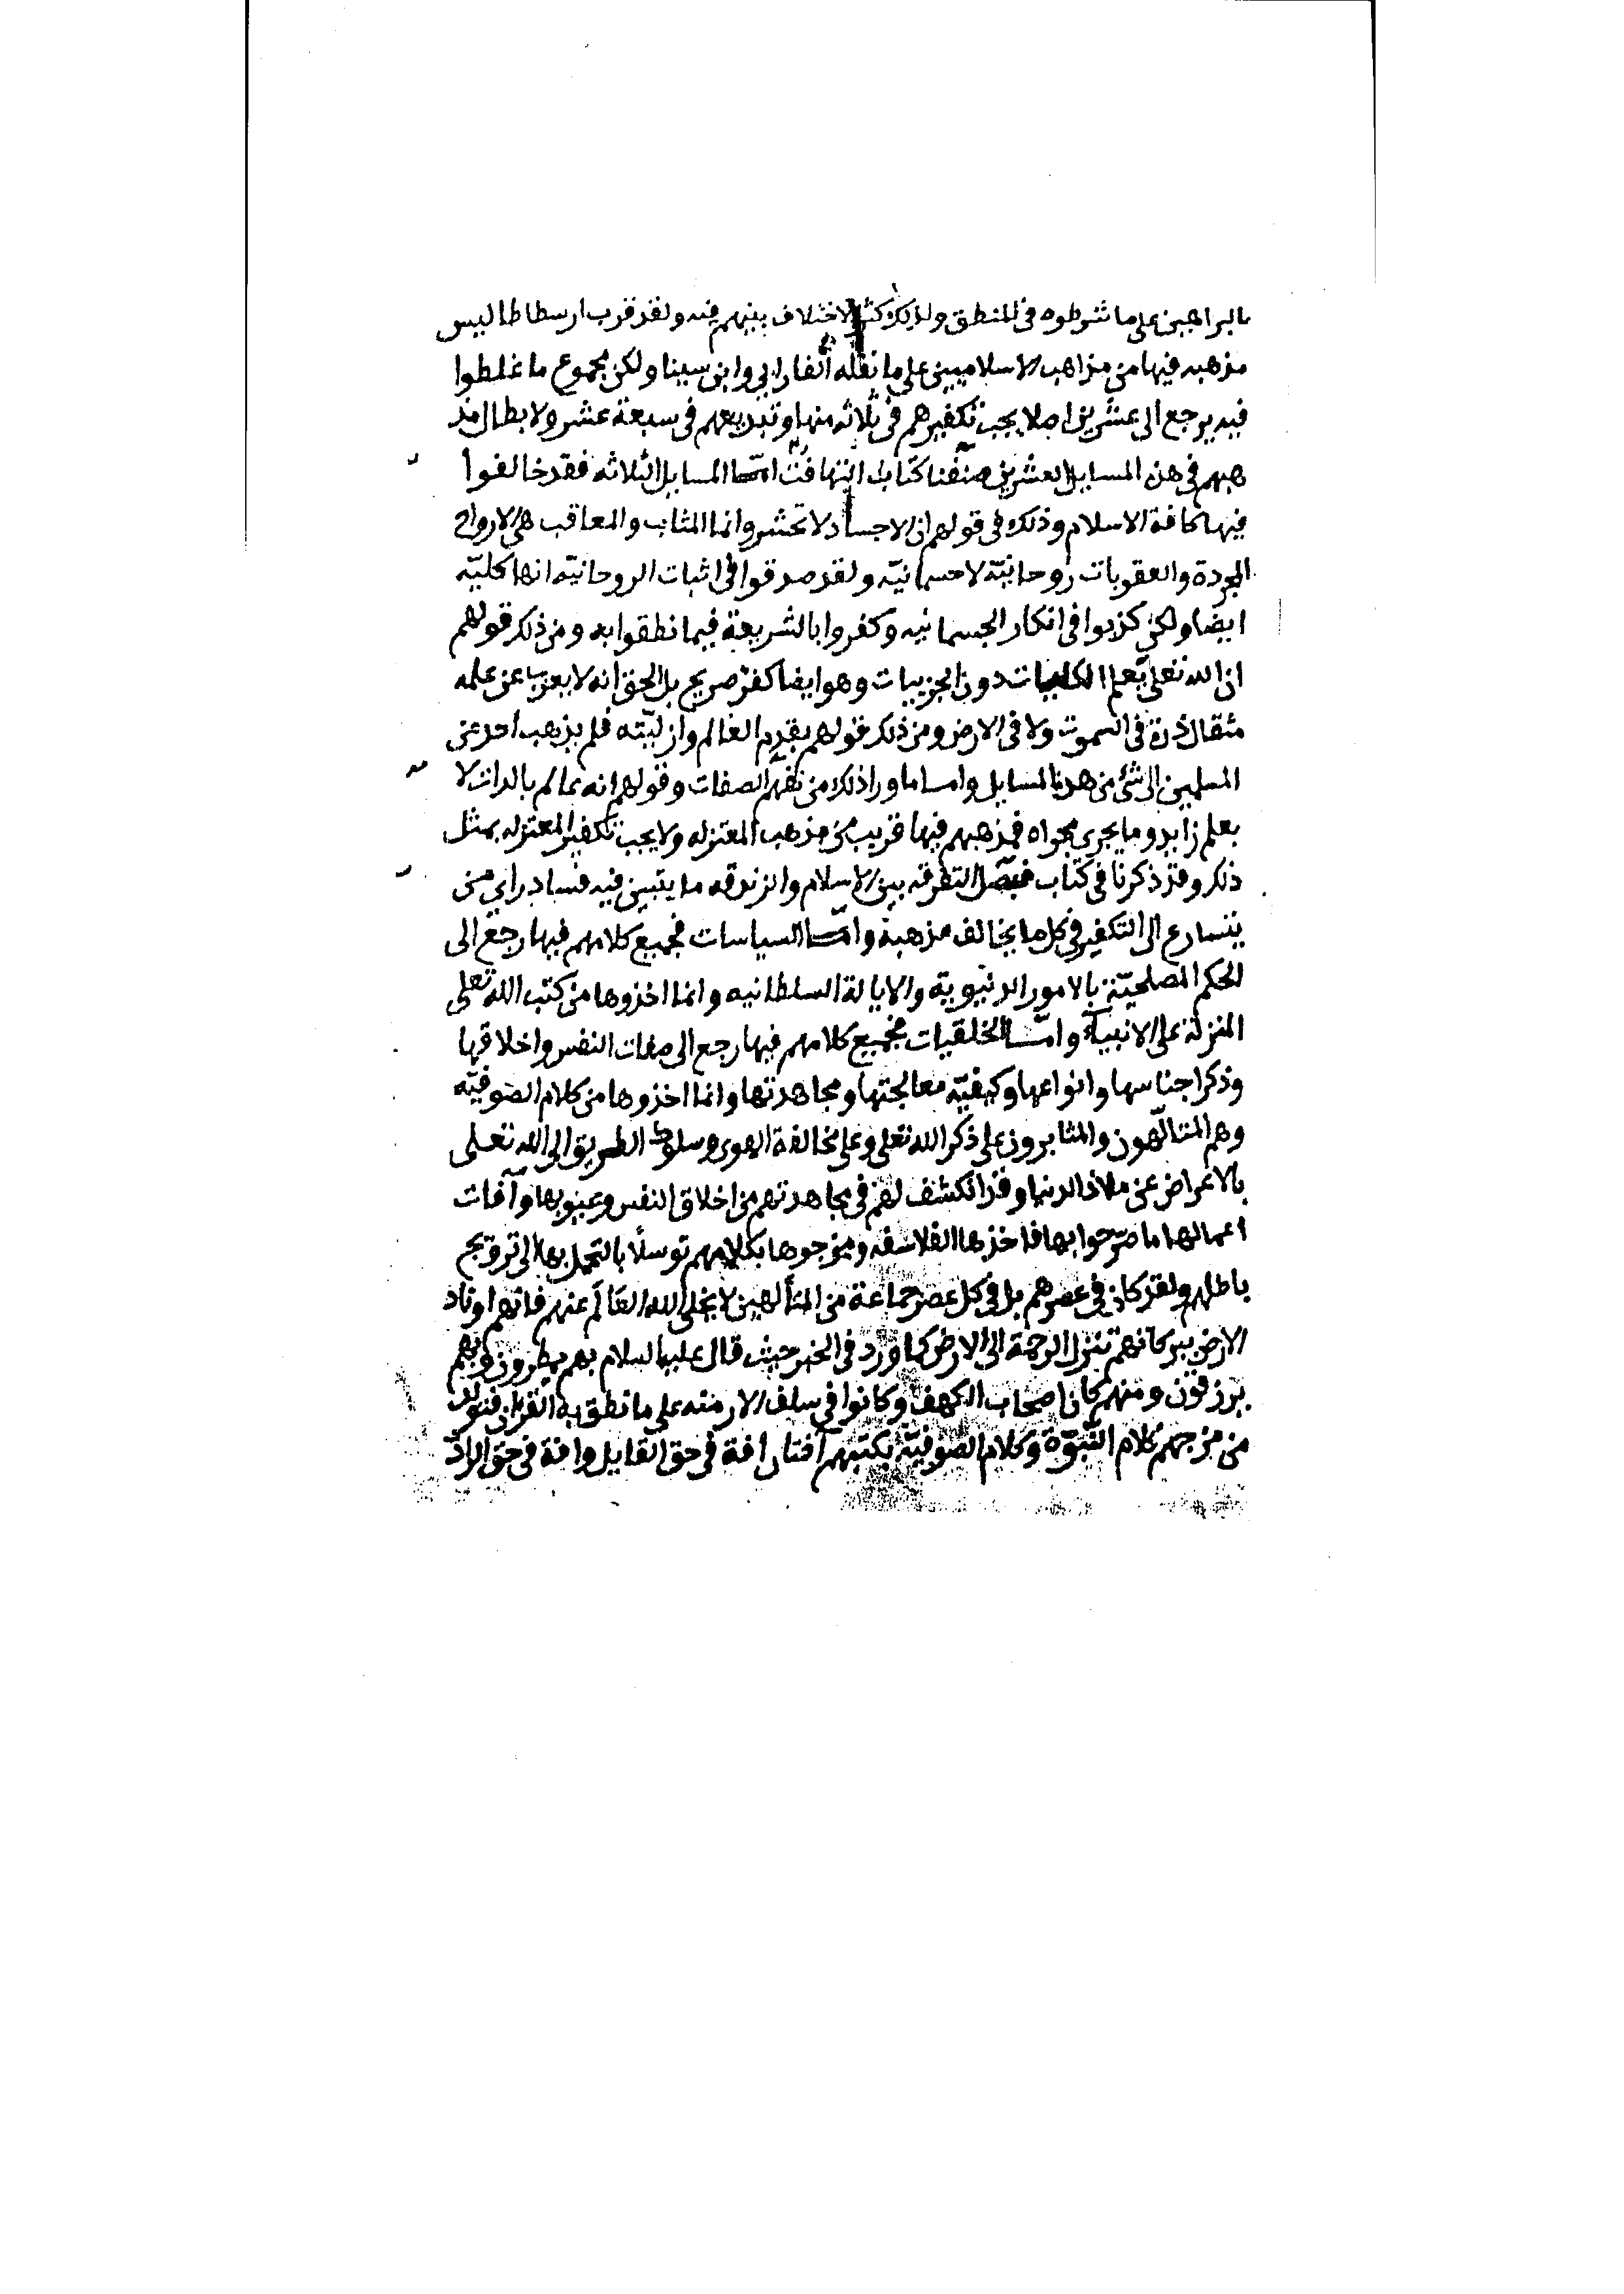 بالبراهين على ما شرطوه في المنطق ولذلك كثر الاختلاف بينهم فيه ولقد قرب ارسطاطاليس
مذهبه فيها من مذاهب الاسلاميين على ما نقله الفارابي وابن سينا ولكن مجموع ما غلطوا
فيه يرجع الى عشرين اصلا يجب تكفيرهم في ثلاثه منها وتبديعهم في سبعة عشر ولابطال مذ
هبهم في هذه المسايل العشرين صنفنا كتاب التهافت امّا المسايل الثلاثه فقد خالفوا
فيها كافة الاسلام وذلك في قولهم ان الاجساد لا تحشر وانما المثاب والمعاقب هي الارواح
المجردة والعقوبات روحانيّة لا جسمانيّه ولقد صدقوا في اثبات الروحانيّه انها كليّه
ايضا ولكن كذبوا في انكار الجسمانيه وكفروا بالشريعة فيما نطقوا به ومن ذلك قولهم
ان الله تعلى يعلم الكليات دون الجزييات وهو ايضا كفر صريح بل الحق انه لا يعزب عن علمه
مثقال ذرة في السموت ولا في الارض ومن ذلك قولهم بقدم العالم وازليّته فلم يذهب احد من
المسلمين الى شئ من هذه المسايل وامـا ما ورا ذلك من نفيهم الصفات وقولهم انه عالم بالذات لا
بعلم زايد وما يجري مجراه فمذهبهم فيها قريب من مذهب المعتزله ولا يجب تكفير المعتزله بمثل
ذلك وقد ذكرنا في كتاب فيصل التفرقه بين الاسلام والزندقه ما يتبين فيه فساد راي من
يتسارع الى التكفير في كل ما يخالف مذهبه وامّا السياسات فجميع كلامهم فيها رجع الى
الحكم المصلحيّة بالامور الدنيوية والايالة السلطانيه وانما اخذوها من كتب الله تعلى
المنزلة على الانبيآء وامّا الخلقيات فجميع كلامهم فيها رجع الى صفات النفس واخلاقها
وذكر اجناسها وانواعها وكيفيّه معالجتها ومجاهدتها وانما اخذوها من كلام الصوفيّه
وهم المتالّهون والمثابرون على ذكر الله تعلى وعلى مخالفة الهوى وسلوك الطريق الى الله تعـلى
بالاعراض عن ملاذ الدنيا وقد انكشف لهم في مجاهدتهم من اخلاق النفس وعيوبها وآفات
اعمالها ما صرّحوا بها فاخذها الفلاسفه ومزجوها بكلامهم توسلًا بالتجمل بها الى ترويج
باطلهم ولقد كان في عصرهم بل في كل عصر جماعة من المتألهين لا يخلي الله العالم عنهم فانهم اوتاد
الارض ببركاتهم تنزل الرحمة الى الارض كما ورد في الخبر حيث قال عليه السلام بهم يمطرون وبهم
يرزقون ومنهم كان اصحاب الكهف وكانوا في سلف الازمنه على ما نطق به القران فتولد
من مزجهم كلام النّبوّة وكلام الصوفيّة بكتبهم آفتان افة في حق القايل وافة في حق الرادّ